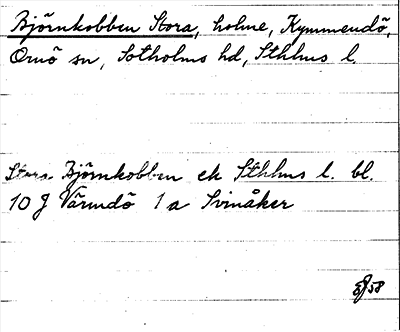 Björnkobben Stora, holme, Kymmendö,
Ornö sn, Sotholms hd, Sthlms l.
Stora Björnkobben ek Sthlms l. bl.
10 J Värmdö 1 a Svinåker
58